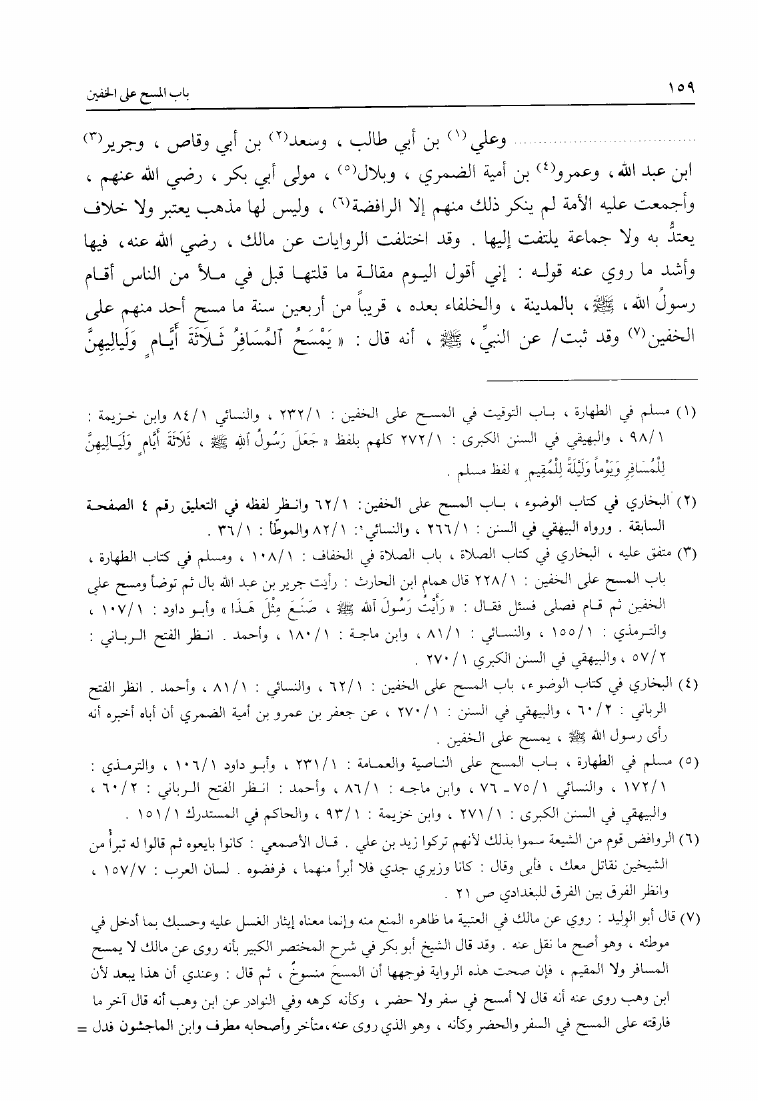 باب المسح على الخفين ١٥٩
وعلي(١) بن أبي طالب ، وسعد(٢) بن أبي وقاص ، وجرير(٣)
ابن عبد الله، وعمرو(٤) بن أمية الضمري ، وبلال(٥) ، مولى أبي بكر ، رضي الله عنهم ،
وأجمعت عليه الأمة لم ينكر ذلك منهم إلا الرافضة(٦) ، وليس لها مذهب يعتبر ولا خلاف
يعتدُّ به ولا جماعة يلتفت إليها . وقد اختلفت الروايات عن مالك ، رضي الله عنه، فيها
وأشد ما روي عنه قوله : إني أقول اليوم مقالة ما قلتها قبل في ملأ من الناس أقام
رسولُ الله، ﷺ، بالمدينة ، والخلفاء بعده ، قريباً من أربعين سنة ما مسح أحد منهم على
الخفين(٧) وقد ثبت/ عن النبيِّ، ﷺ ، أنه قال : « يَمْسَحُ المُسَافِرُ ثَلَاثَةَ أَيَّامٍ وَلَيالِيهِنَّ
(١) مسلم في الطهارة ، باب التوقيت في المسح على الخفين : ٢٣٢/١ ، والنسائي ٨٤/١ وابن خزيمة :
٩٨/١ ، والبهيقي في السنن الكبرى : ٢٧٢/١ كلهم بلفظ « جَعَلَ رَسُولُ اللهِ ﷺ ، ثَلَاثَةَ أَيَّامٍ وَلَيَالِيهِنَّ
لِلْمُسَافِرِ وَيَوْماً وَلَيْلَةً لِلْمُقِيمِ » لفظ مسلم .
(٢) البخاري في كتاب الوضوء ، باب المسح على الخفين: ٦٢/١ وانظر لفظه في التعليق رقم ٤ الصفحة
السابقة . ورواه البيهقي في السنن : ٢٦٦/١ ، والنسائي: ٨٢/١ والموطّأ : ٣٦/١ .
(٣) متفق عليه ، البخاري في كتاب الصلاة ، باب الصلاة في الخفاف : ١٠٨/١ ، ومسلم في كتاب الطهارة ،
باب المسح على الخفين : ٢٢٨/١ قال همام ابن الحارث : رأيت جرير بن عبد الله بال ثم توضأ ومسح على
الخفين ثم قام فصلى فسئل فقال : « رَأَيْتُ رَسُولَ اللهِ ﷺ ، صَنَعَ مِثْلَ هَذَا » وأبو داود : ١٠٧/١ ،
والترمذي : ١٥٥/١ ، والنسائي : ٨١/١ ، وابن ماجة : ١٨٠/١ ، وأحمد . انظر الفتح الرباني :
٥٧/٢ ، والبيهقي في السنن الكبري ٢٧٠/١ .
(٤) البخاري في كتاب الوضوء، باب المسح على الخفين : ٦٢/١ ، والنسائي : ٨١/١ ، وأحمد . انظر الفتح
الرباني : ٦٠/٢ ، والبيهقي في السنن : ٢٧٠/١ ، عن جعفر بن عمرو بن أمية الضمري أن أباه أخبره أنه
رأى رسول الله ﷺ ، يمسح على الخفين .
(٥) مسلم في الطهارة ، باب المسح على الناصية والعمامة : ٢٣١/١ ، وأبو داود ١٠٦/١ ، والترمذي :
١٧٢/١ ، والنسائي ٧٥/١ـ ٧٦ ، وابن ماجه : ٨٦/١ ، وأحمد : انظر الفتح الرباني : ٦٠/٢ ،
والبيهقي في السنن الكبرى : ٢٧١/١ ، وابن خزيمة : ٩٣/١ ، والحاكم في المستدرك ١٥١/١ .
(٦) الروافض قوم من الشيعة سموا بذلك لأنهم تركوا زيد بن علي . قال الأصمعي : كانوا بايعوه ثم قالوا له تبرأ من
الشيخين نقاتل معك ، فأبى وقال : كانا وزيري جدي فلا أبرأ منهما ، فرفضوه . لسان العرب : ١٥٧/٧ ،
وانظر الفرق بين الفرق للبغدادي ص ٢١ .
(٧) قال أبو الوليد : روي عن مالك في العتبية ما ظاهره المنع منه وإنما معناه إيثار الغسل عليه وحسبك بما أدخل في
موطئه ، وهو أصح ما نقل عنه . وقد قال الشيخ أبو بكر في شرح المختصر الكبير بأنه روى عن مالك لا يمسح
المسافر ولا المقيم ، فإن صحت هذه الرواية فوجهها أن المسحَ منسوخٌ ، ثم قال : وعندي أن هذا يبعد لأن
ابن وهب روى عنه أنه قال لا أمسح في سفر ولا حضر ، وكأنه كرهه وفي النوادر عن ابن وهب أنه قال آخر ما
فارقته على المسح في السفر والحضر وكأنه ، وهو الذي روى عنه،متأخر وأصحابه مطرف وابن الماجشون فدل =